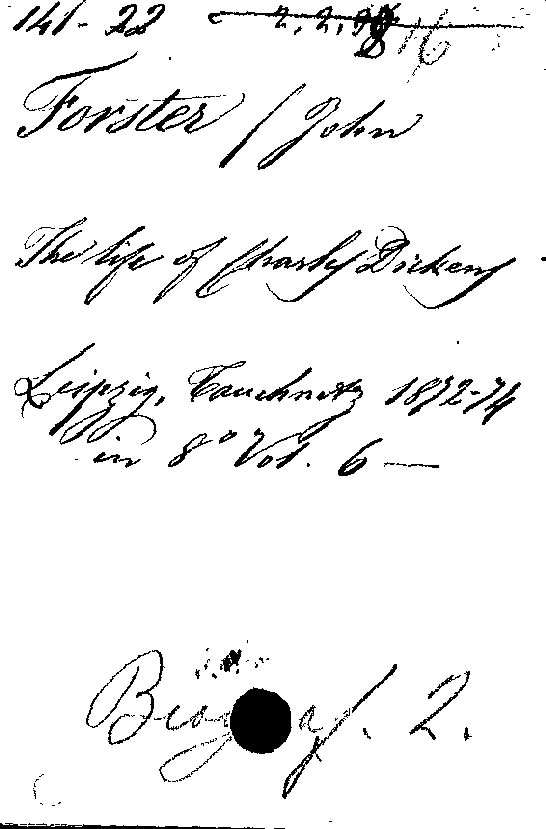 141-22
Forster / John
The life of Charles Dickens
Leipzig, Tauchnitz 1872-74
in 8° Vol. 6 —
Biograf. 2.